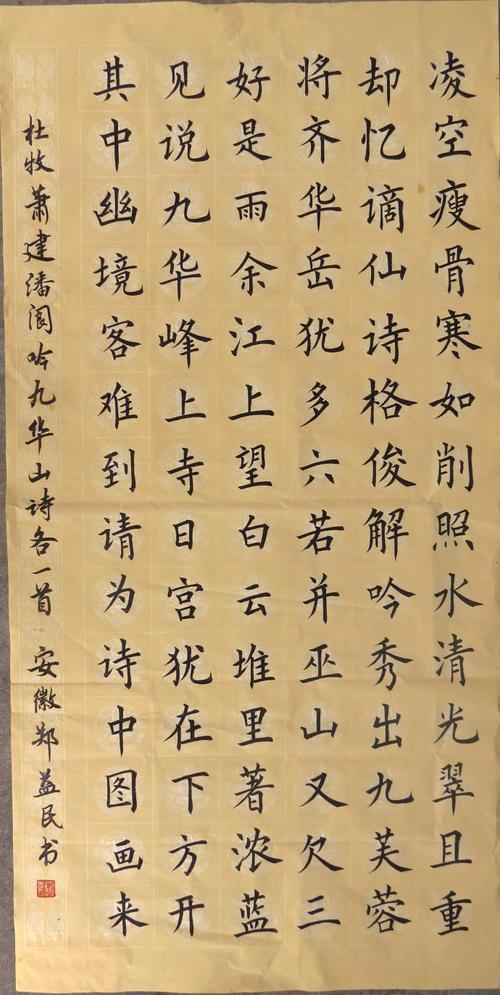 凌空瘦骨寒如削照水清光翠且重
却忆谪仙诗格俊解吟秀出九芙蓉
将齐华岳犹多六若并巫山又欠三
好是雨余江上望白云堆里著浓蓝
见说九华峰上寺日宫犹在下方开
其中幽境客难到请为诗中图画来
杜牧萧建潘阆吟九华山诗各一首 安徽郑益民书